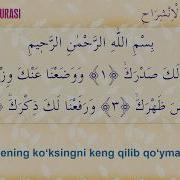 URASI الْاِنْشِرَاح
بِسْمِ اللَّهِ الرَّحْمٰنِ الرَّحِيمِ
لَكَ صَدْرَكَ ﴿١﴾ وَوَضَعْنَا عَنْكَ وِزْ
ضَ ظَهْرَكَ ﴿٣﴾ وَرَفَعْنَا لَكَ ذِكْرَكَ
ening ko‘ksingni keng qilib qo‘yma